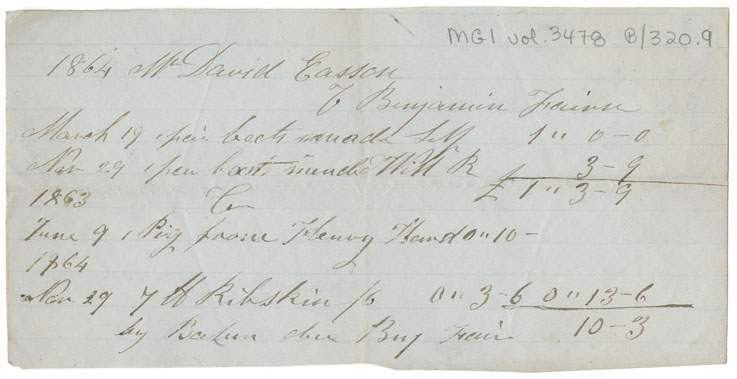 MG1 vol. 3478 B/320.9
1864 Mr David Easson
To Benjamin Fairn
March 19 1 pair boots made Self 1 " 0 - 0
Nov 29 1 pair boots mended Will R 3 - 9
£ 1 " 3 - 9
1863 Cr
June 9 1 Pig from Henry Hand 0 " 10 -
1864
Nov 29 7 lb 0 " 3 - 6 0 " 13 - 6
by due Benj Fairn 10 - 3